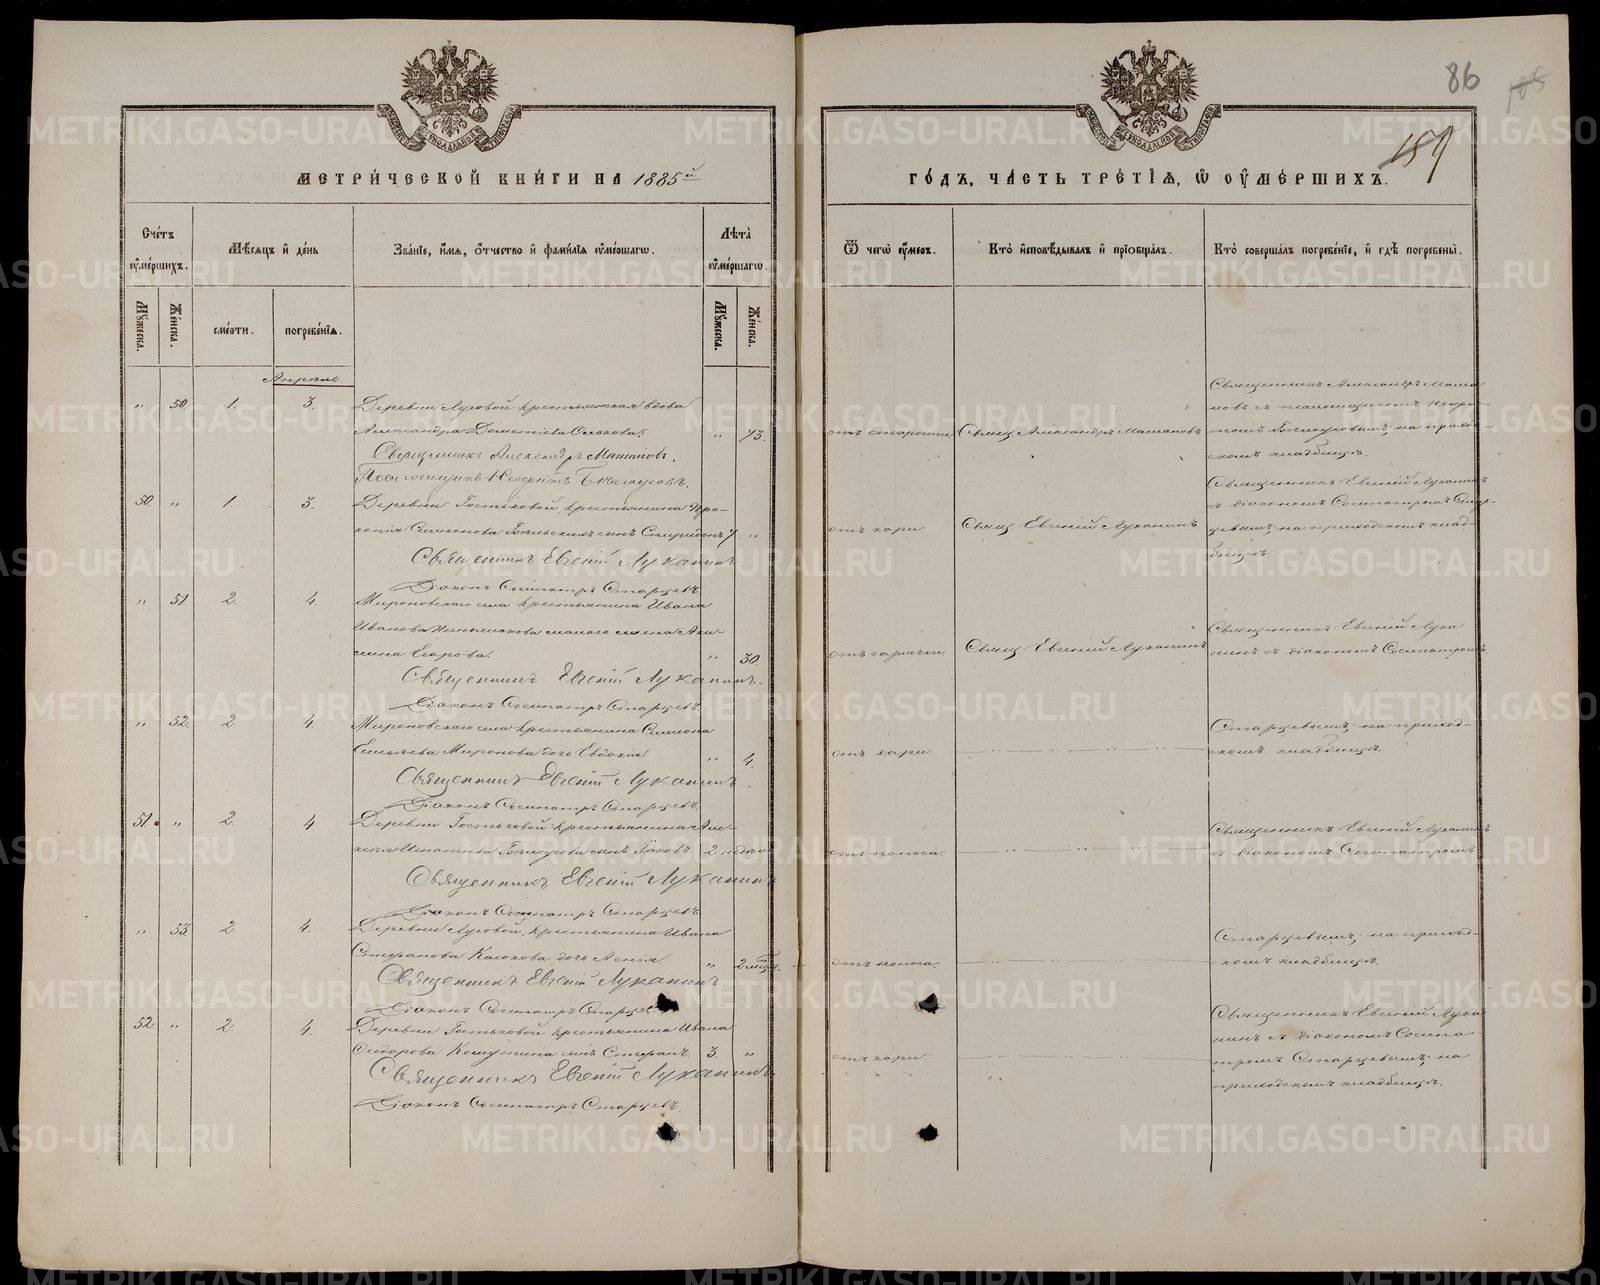 86
159
МЕТРИЧЕСКОЙ КНИГИ НА 1885й
ГОДЪ, ЧАСТЬ ТРЕТІЯ, Ѿ ОУМЕРШИХЪ.
Счетъ оумершихъ.
Мѣсяцъ и день
Званіе, имя, отчество и фамилія оумершагѡ.
Лѣта оумершагѡ.
Ѿ чегѡ оумеръ.
Кто исповѣдывалъ и пріобщалъ.
Кто совершалъ погребеніе, и гдѣ погребены.
Мужеска.
Женска.
смерти.
погребенія.
Мужеска.
Женска.
Апрѣль.
„ 50. 1. 3. Деревни Луговой крестьянская вдова
Александра Дометіева „ 73.
Священникъ Александръ Мамановъ.
Псаломщикъ Неофитъ Бѣлоусовъ.
отъ старости. Свящ. Александръ Мамановъ
Священникъ Александръ Мама
новъ съ псаломщикомъ Неофи-
томъ Бѣлоусовымъ, на приход-
скомъ кладбищѣ.
50. „ 1. 3. Деревни Гостьковой крестьянина Про-
копія Симеонова сынъ Спиридонъ 7 „
Священникъ Евгеній Луканинъ.
Діаконъ Сосипатръ Старцевъ.
отъ кори. Свящ. Евгеній Луканинъ.
Священникъ Евгеній Луканинъ
съ діакономъ Сосипатромъ Стар-
цевымъ; на приходскомъ клад-
бищѣ.
„ 51. 2. 4. Мироновскаго села крестьянина Ивана
Иванова жена Аки-
лина Егорова. „ 30.
Священникъ Евгеній Луканинъ.
Діаконъ Сосипатръ Старцевъ.
отъ горячки. Свящ. Евгеній Луканинъ
Священникъ Евгеній Лука
нинъ съ діакономъ Сосипатромъ
„ 52. 2 4. Мироновскаго села крестьянина Симеона
Миронова дочь Евдокія. „ 4.
Священникъ Евгеній Луканинъ
Діаконъ Сосипатръ Старцевъ.
отъ кори.
Старцевымъ; на приход-
скомъ кладбищѣ.
51. „ 2. 4. Деревни Гостьковой крестьянина Але-
ксѣя Игнатіева Бѣлоусова сынъ Іаковъ 2 недѣли
Священникъ Евгеній Луканинъ
Діаконъ Сосипатръ Старцевъ.
отъ поноса.
Священникъ Евгеній Луканинъ
съ діакономъ Сосипатромъ
„ 53. 2. 4. Деревни Луговой, крестьянина Ивана
Стефанова дочь „ 2 мѣс.
Священникъ Евгеній Луканинъ
Діаконъ Сосипатръ Старцевъ
отъ поноса.
Старцевымъ; на приход-
скомъ кладбищѣ.
52. „ 2. 4. Деревни Гостьковой крестьянина Ивана
Ѳеодорова сынъ Стефанъ. 3. „
Священникъ Евгеній Луканинъ
Діаконъ Сосипатръ Старцевъ.
отъ кори.
Священникъ Евгеній Лука
нинъ съ діакономъ Сосипа-
тромъ Старцевымъ; на
приходскомъ кладбищѣ.
METRIKI.GASO-URAL.RU